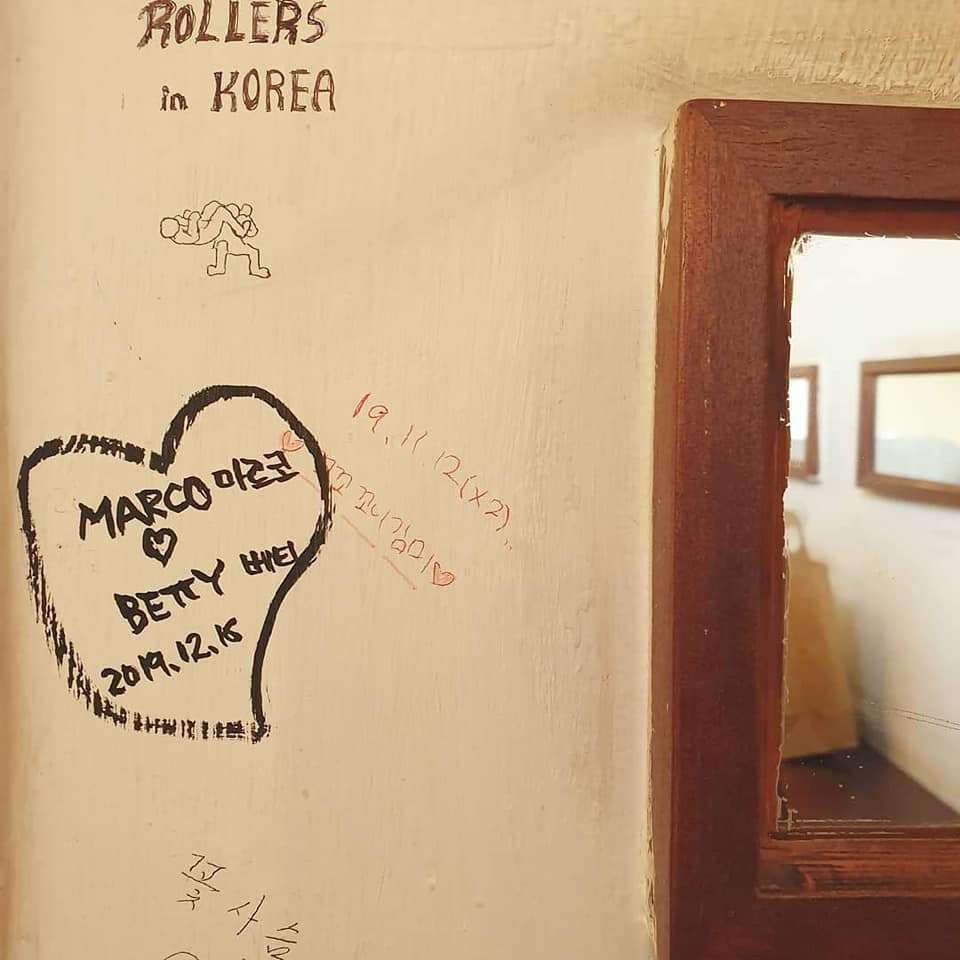 ROLLERS
in KOREA
MARCO 마르코
♡
BETTY 베티
2019.12.15
19.11.12(x2)..
꽃사슴